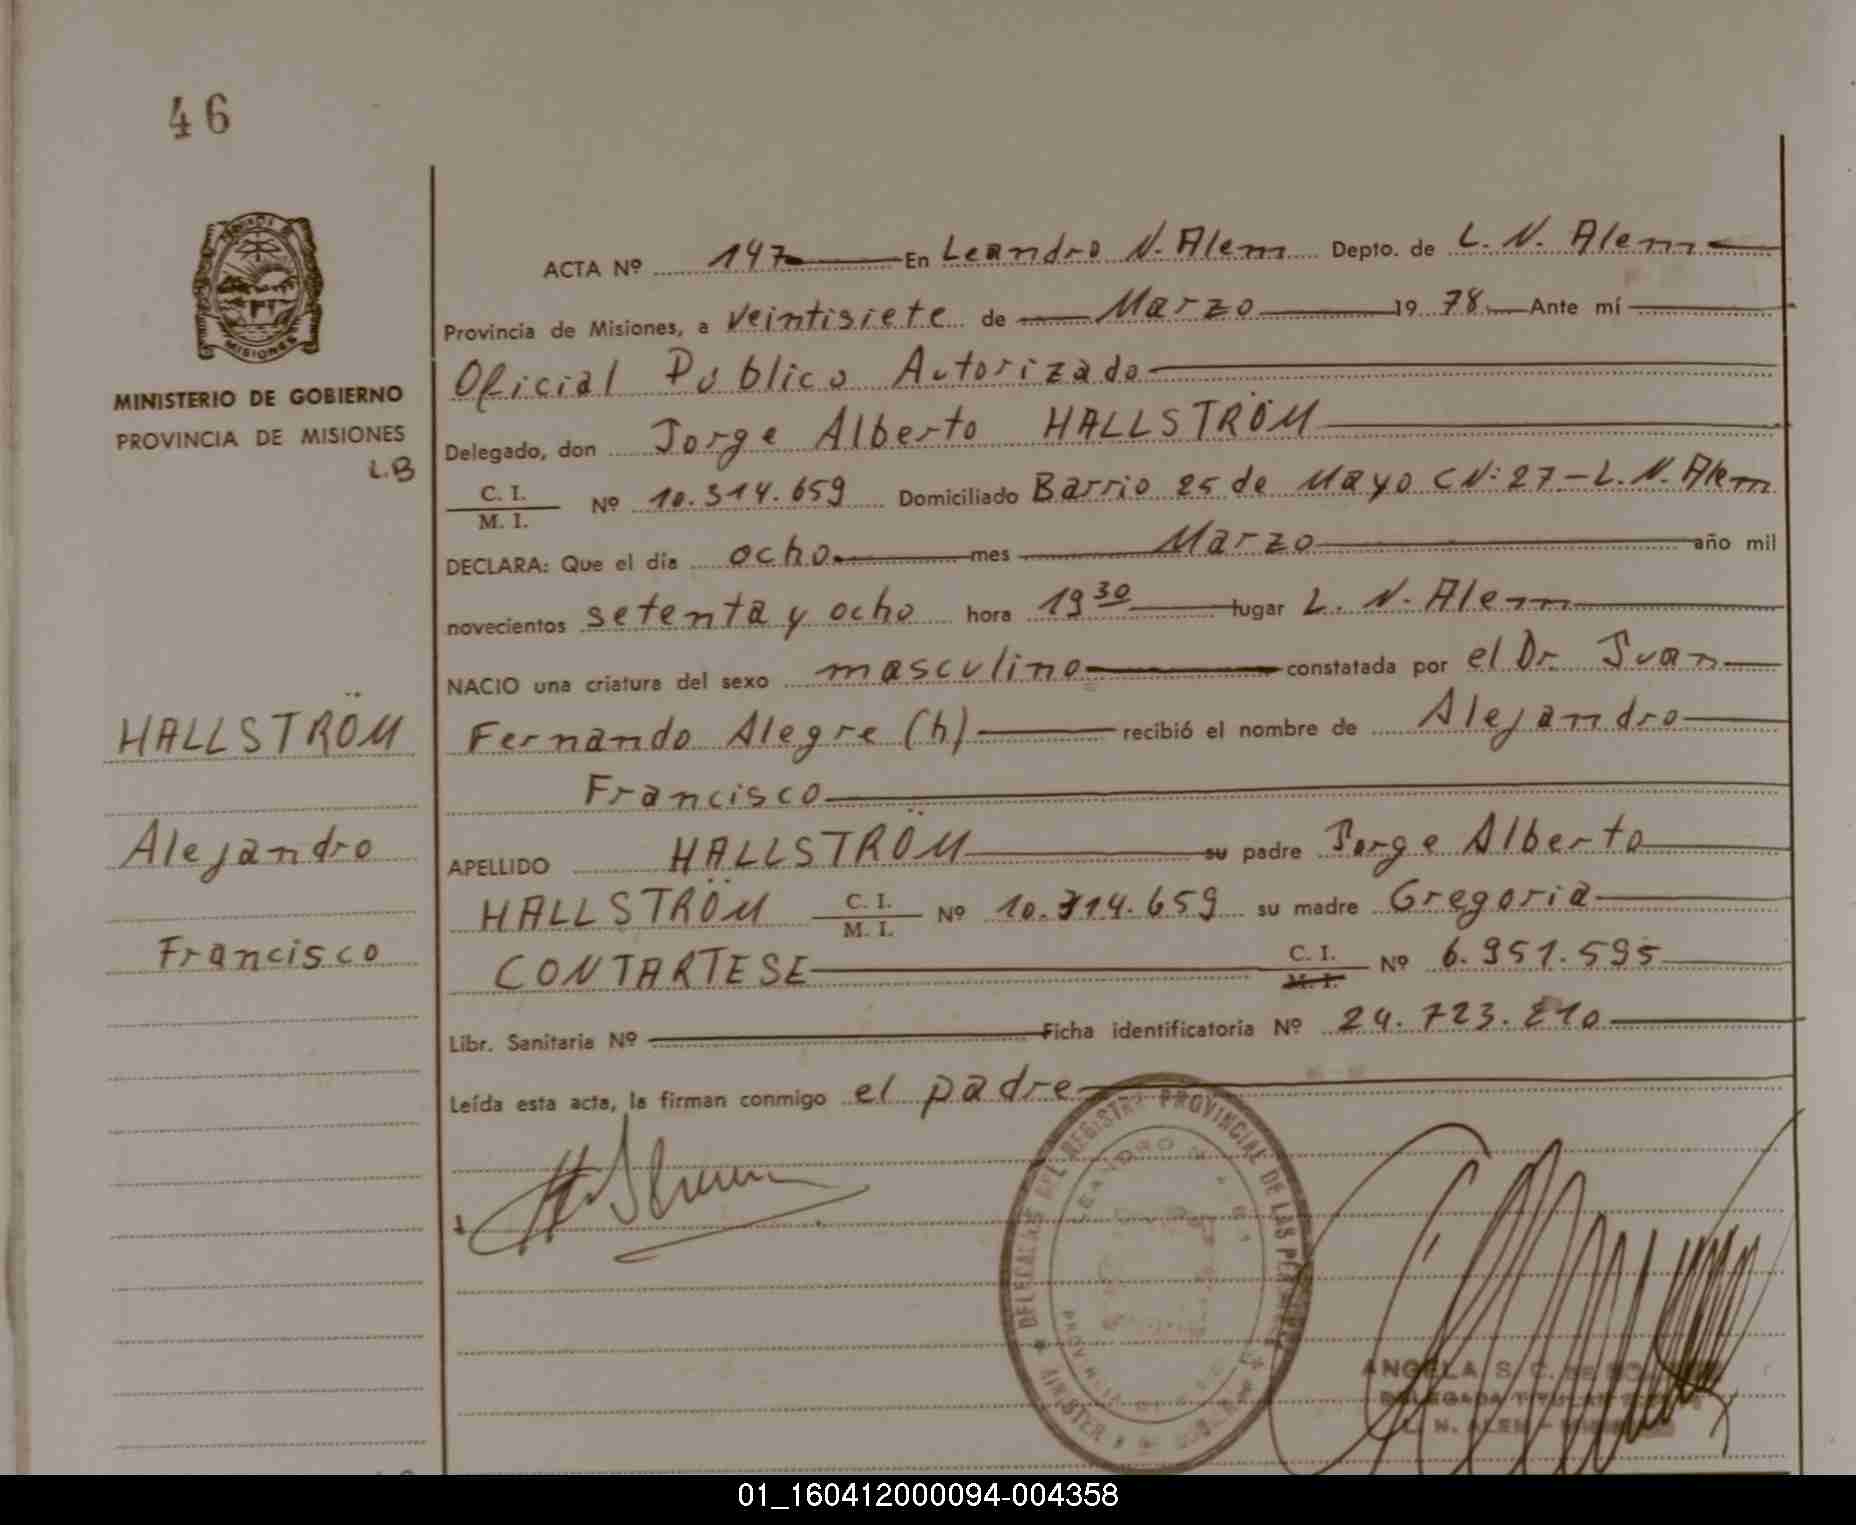 46
MINISTERIO DE GOBIERNO
PROVINCIA DE MISIONES
L.B
HALLSTRÖM
Alejandro
Francisco
ACTA Nº 147 En Leandro N. Alem Depto. de L. N. Alem
Provincia de Misiones, a veintisiete de Marzo 19 78 Ante mí
Oficial Público Autorizado
Delegado, don Jorge Alberto HALLSTRÖM
C. I. / M. I. Nº 10.314.659 Domiciliado Barrio 25 de Mayo C Nº 27 - L. N. Alem
DECLARA: Que el día ocho mes Marzo año mil
novecientos setenta y ocho hora 19 30 lugar L. N. Alem
NACIO una criatura del sexo masculino constatada por el Dr. Juan
Fernando Alegre (h) recibió el nombre de Alejandro
Francisco
APELLIDO HALLSTRÖM su padre Jorge Alberto
HALLSTRÖM C. I. / M. I. Nº 10.314.659 su madre Gregoria
CONTARTESE C. I. / M. I. Nº 6.951.595
Libr. Sanitaria Nº Ficha identificatoria Nº 24.723.210
Leída esta acta, la firman conmigo el padre
ANGELA S. C. DE
DELEGADA TITULAR
L. N. ALEM -
01_160412000094-004358